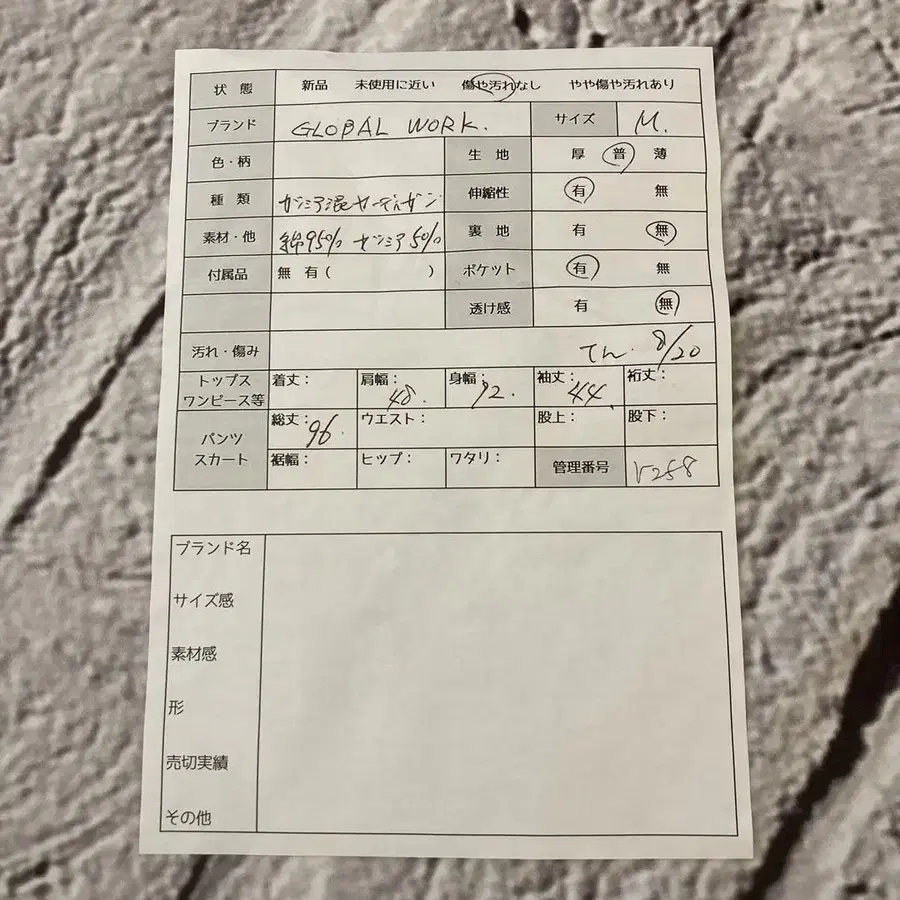 状 態 新品 未使用に近い 傷や汚れなし やや傷や汚れあり
ブランド GLOBAL WORK. サイズ M.
色・柄 生 地 厚 普 薄
種 類 伸縮性 有 無
素材・他 綿95% 5% 裏 地 有 無
付属品 無 有 ( ) ポケット 有 無
透け感 有 無
汚れ・傷み てん. 8/20
トップス
ワンピース等 着丈： 肩幅： 48. 身幅： 袖丈： 44. 裄丈：
パンツ
スカート 総丈： 96. ウエスト： 股上： 股下：
裾幅： ヒップ： ワタリ： 管理番号 V258
ブランド名
サイズ感
素材感
形
売切実績
その他